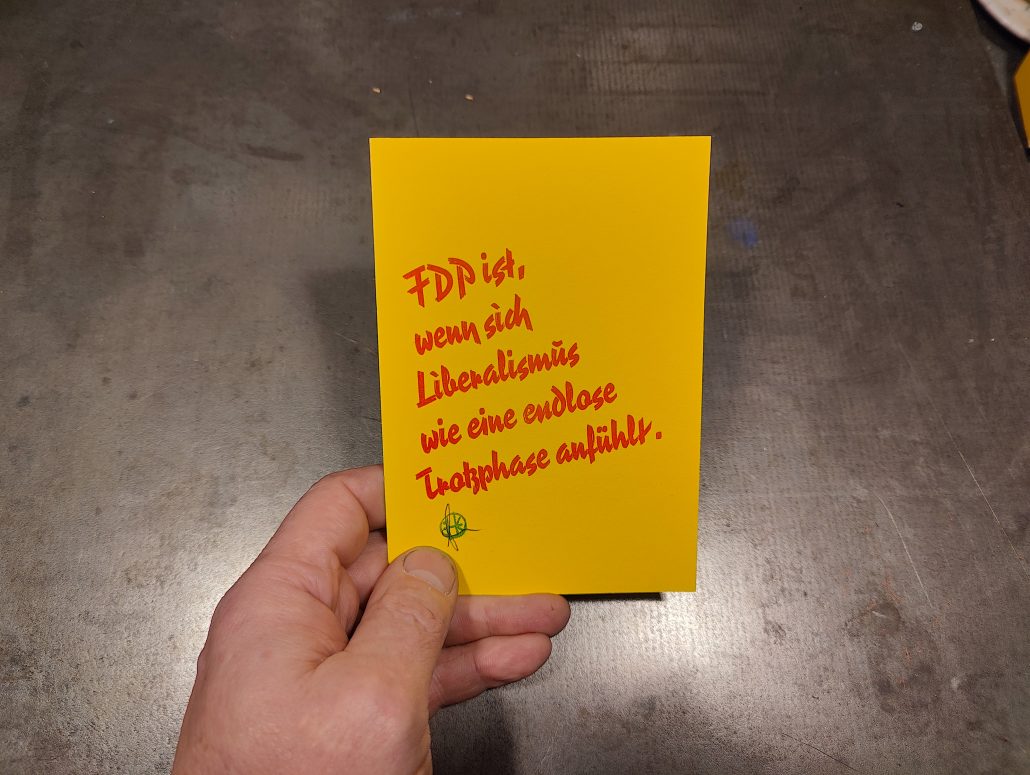 FDP ist,
wenn sich
Liberalismŭs
wie eine endlose
Trotzphase anfühlt.